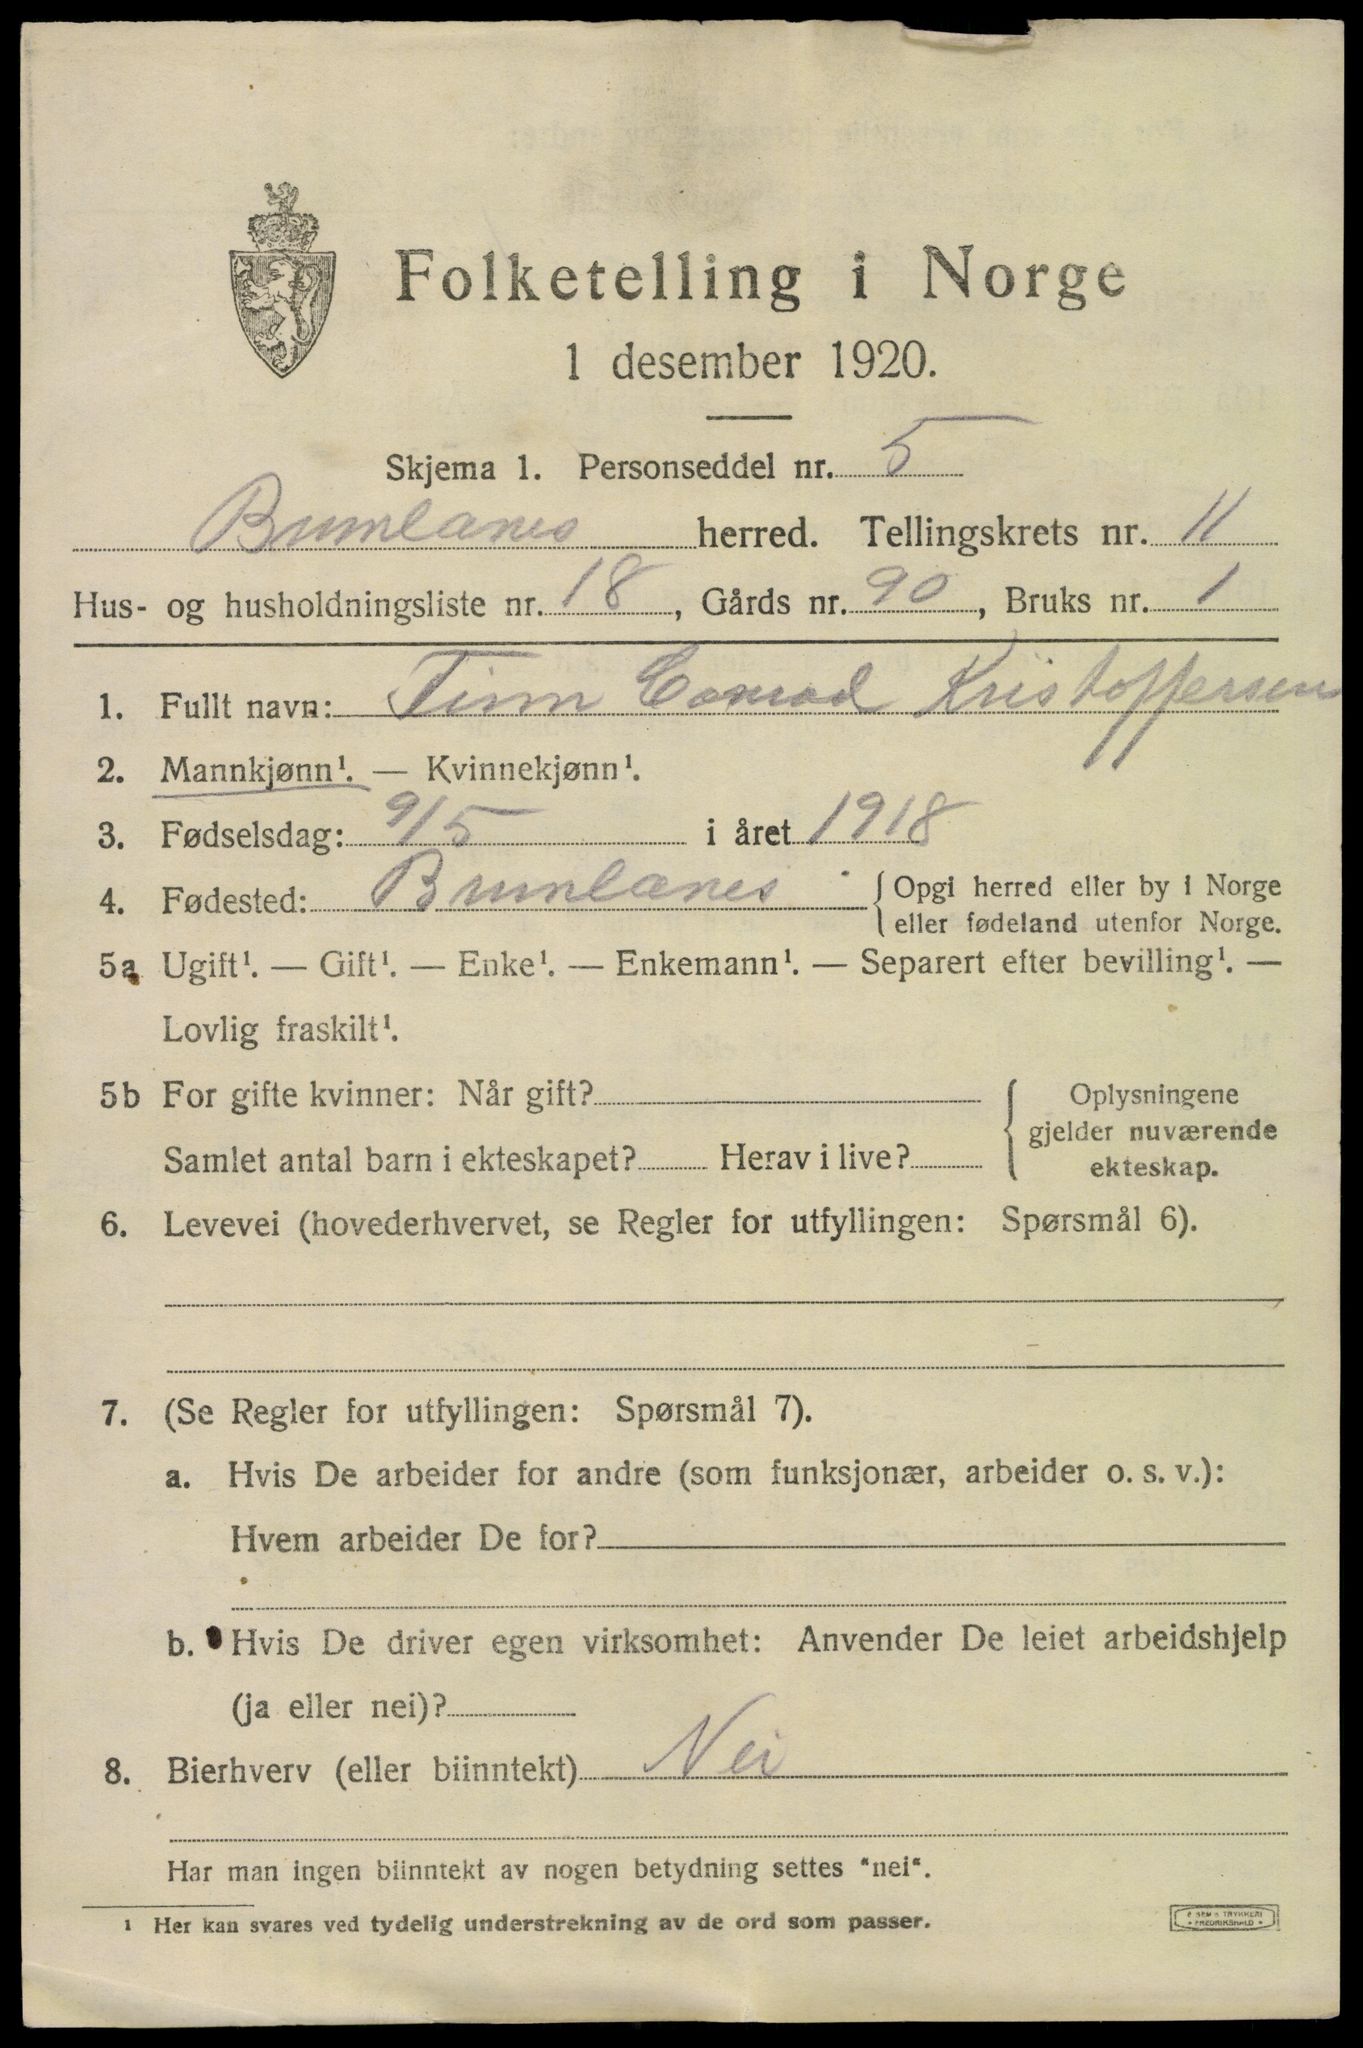 Folketelling i Norge
1 desember 1920.
Skjema 1. Personseddel nr. 5
Brunlanes herred. Tellingskrets nr. 11
Hus- og husholdningsliste nr. 18, Gårds nr. 90, Bruks nr. 1
1. Fullt navn: Finn Conrad Kristoffersen
2. Mannkjønn¹. — Kvinnekjønn¹.
3. Fødselsdag: 9/5 i året 1918
4. Fødested: Brunlanes { Opgi herred eller by i Norge
eller fødeland utenfor Norge.
5a Ugift¹. — Gift¹. — Enke¹. — Enkemann¹. — Separert efter bevilling¹. —
Lovlig fraskilt¹.
5b For gifte kvinner: Når gift?
Samlet antal barn i ekteskapet? Herav i live?
Oplysningene
gjelder nuværende
ekteskap.
6. Levevei (hovederhvervet, se Regler for utfyllingen: Spørsmål 6).
7. (Se Regler for utfyllingen: Spørsmål 7).
a. Hvis De arbeider for andre (som funksjonær, arbeider o. s. v.):
Hvem arbeider De for?
b. Hvis De driver egen virksomhet: Anvender De leiet arbeidshjelp
(ja eller nei)?
8. Bierhverv (eller biinntekt) Nei
Har man ingen biinntekt av nogen betydning settes "nei".
¹ Her kan svares ved tydelig understrekning av de ord som passer.
SEM'S TRYKKERI
• FREDRIKSHALD •